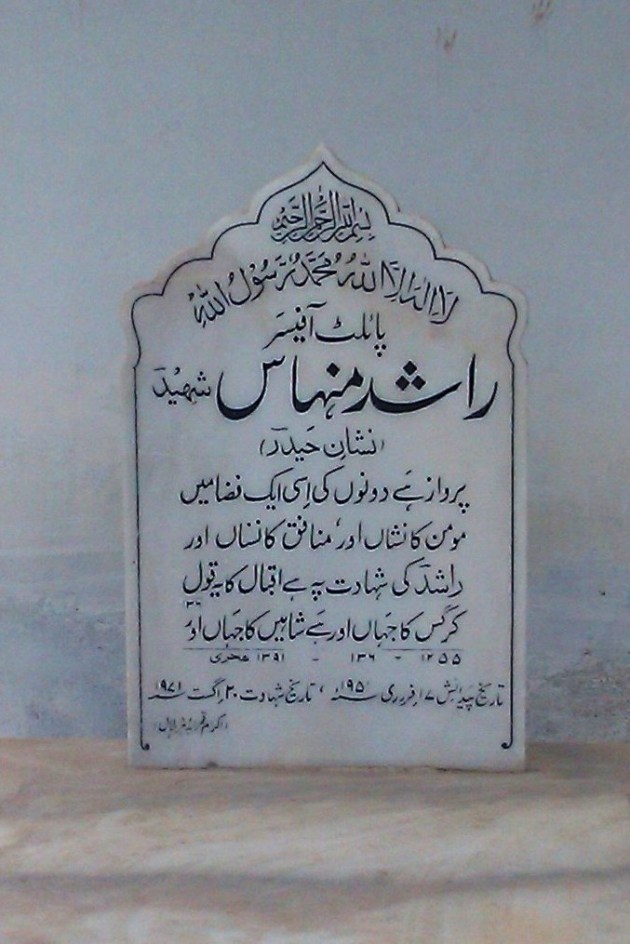 بِسْمِ اللهِ الرَّحْمٰنِ الرَّحِيْمِ
لَا اِلٰهَ اِلَّا اللهُ مُحَمَّدٌ رَّسُوْلُ اللهِ
پائلٹ آفیسر
راشد منہاس شہید
(نشانِ حیدر)
پرواز ہے دونوں کی اِسی ایک فضا میں
مومن کا نشاں اور، منافق کا نشاں اور
راشد کی شہادت پہ ہے اقبال کا یہ قول
کرگس کا جہاں اور ہے شاہیں کا جہاں اور
۳۶
۱۲۵۵ - ۱۳۶ - ۱۳۹۱ ھجری
تاریخ پیدائش ۱۷ فروری ۱۹۵۱ء ، تاریخ شہادت ۲۰ اگست ۱۹۷۱ء